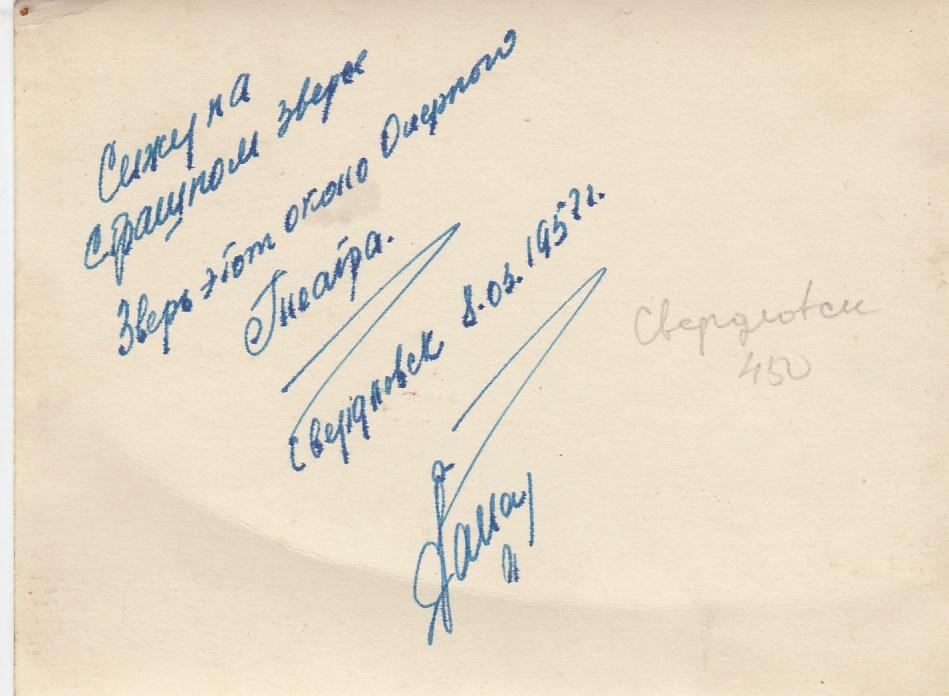 Сижу на
страшном звере
Зверь этот около Оперного
Театра.
Свердловск 8.03.1957г.
Свердловск
450